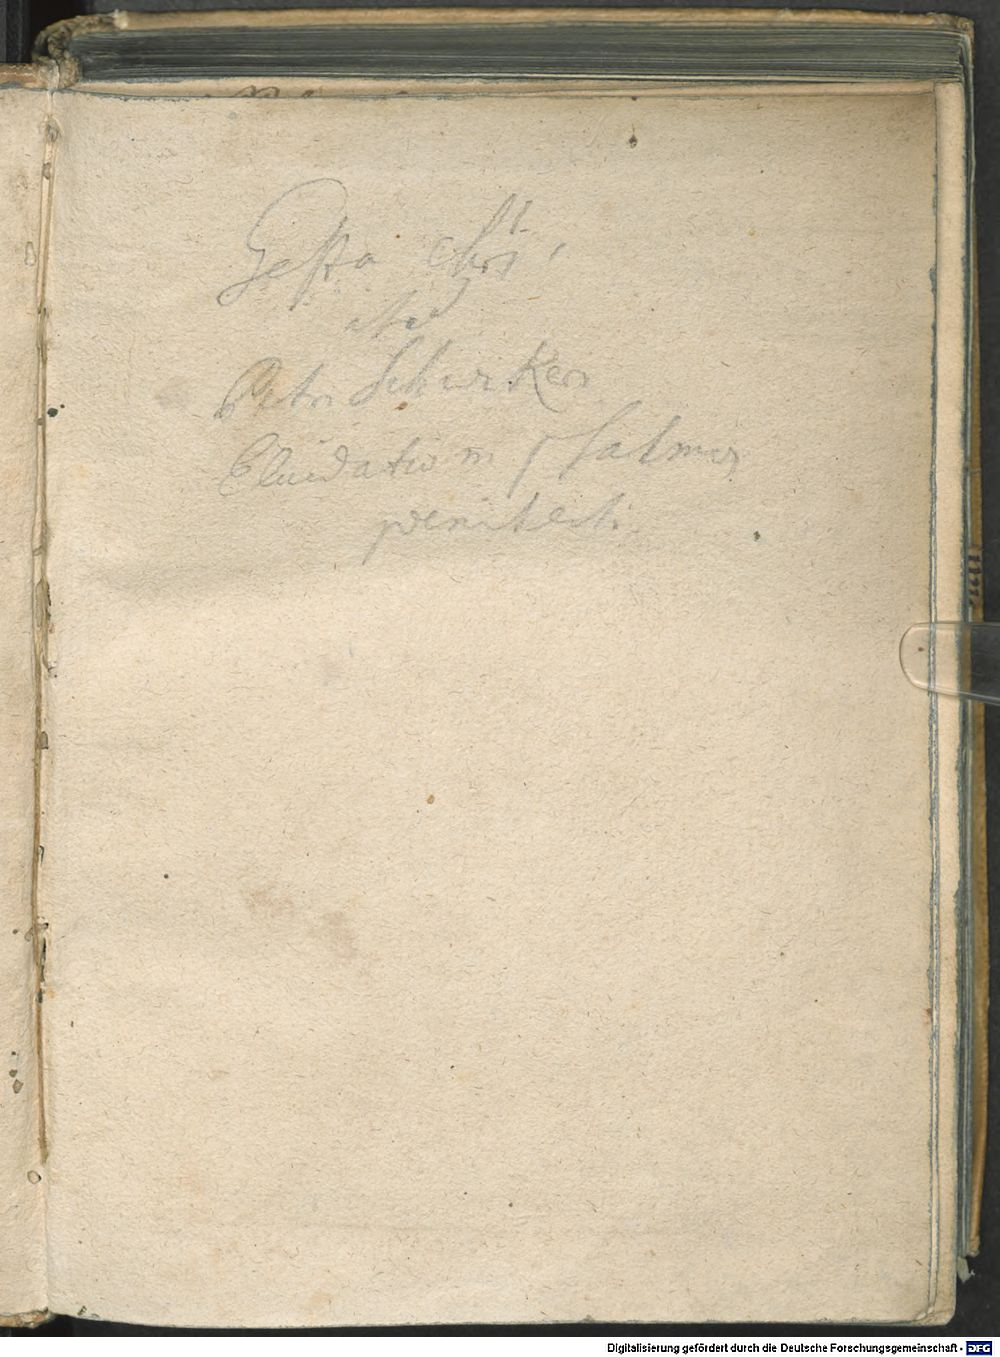 Gesta Chri,
Petri Schwrken
Elucidatio in psalmos
penitenti.
Digitalisierung gefördert durch die Deutsche Forschungsgemeinschaft - DFG